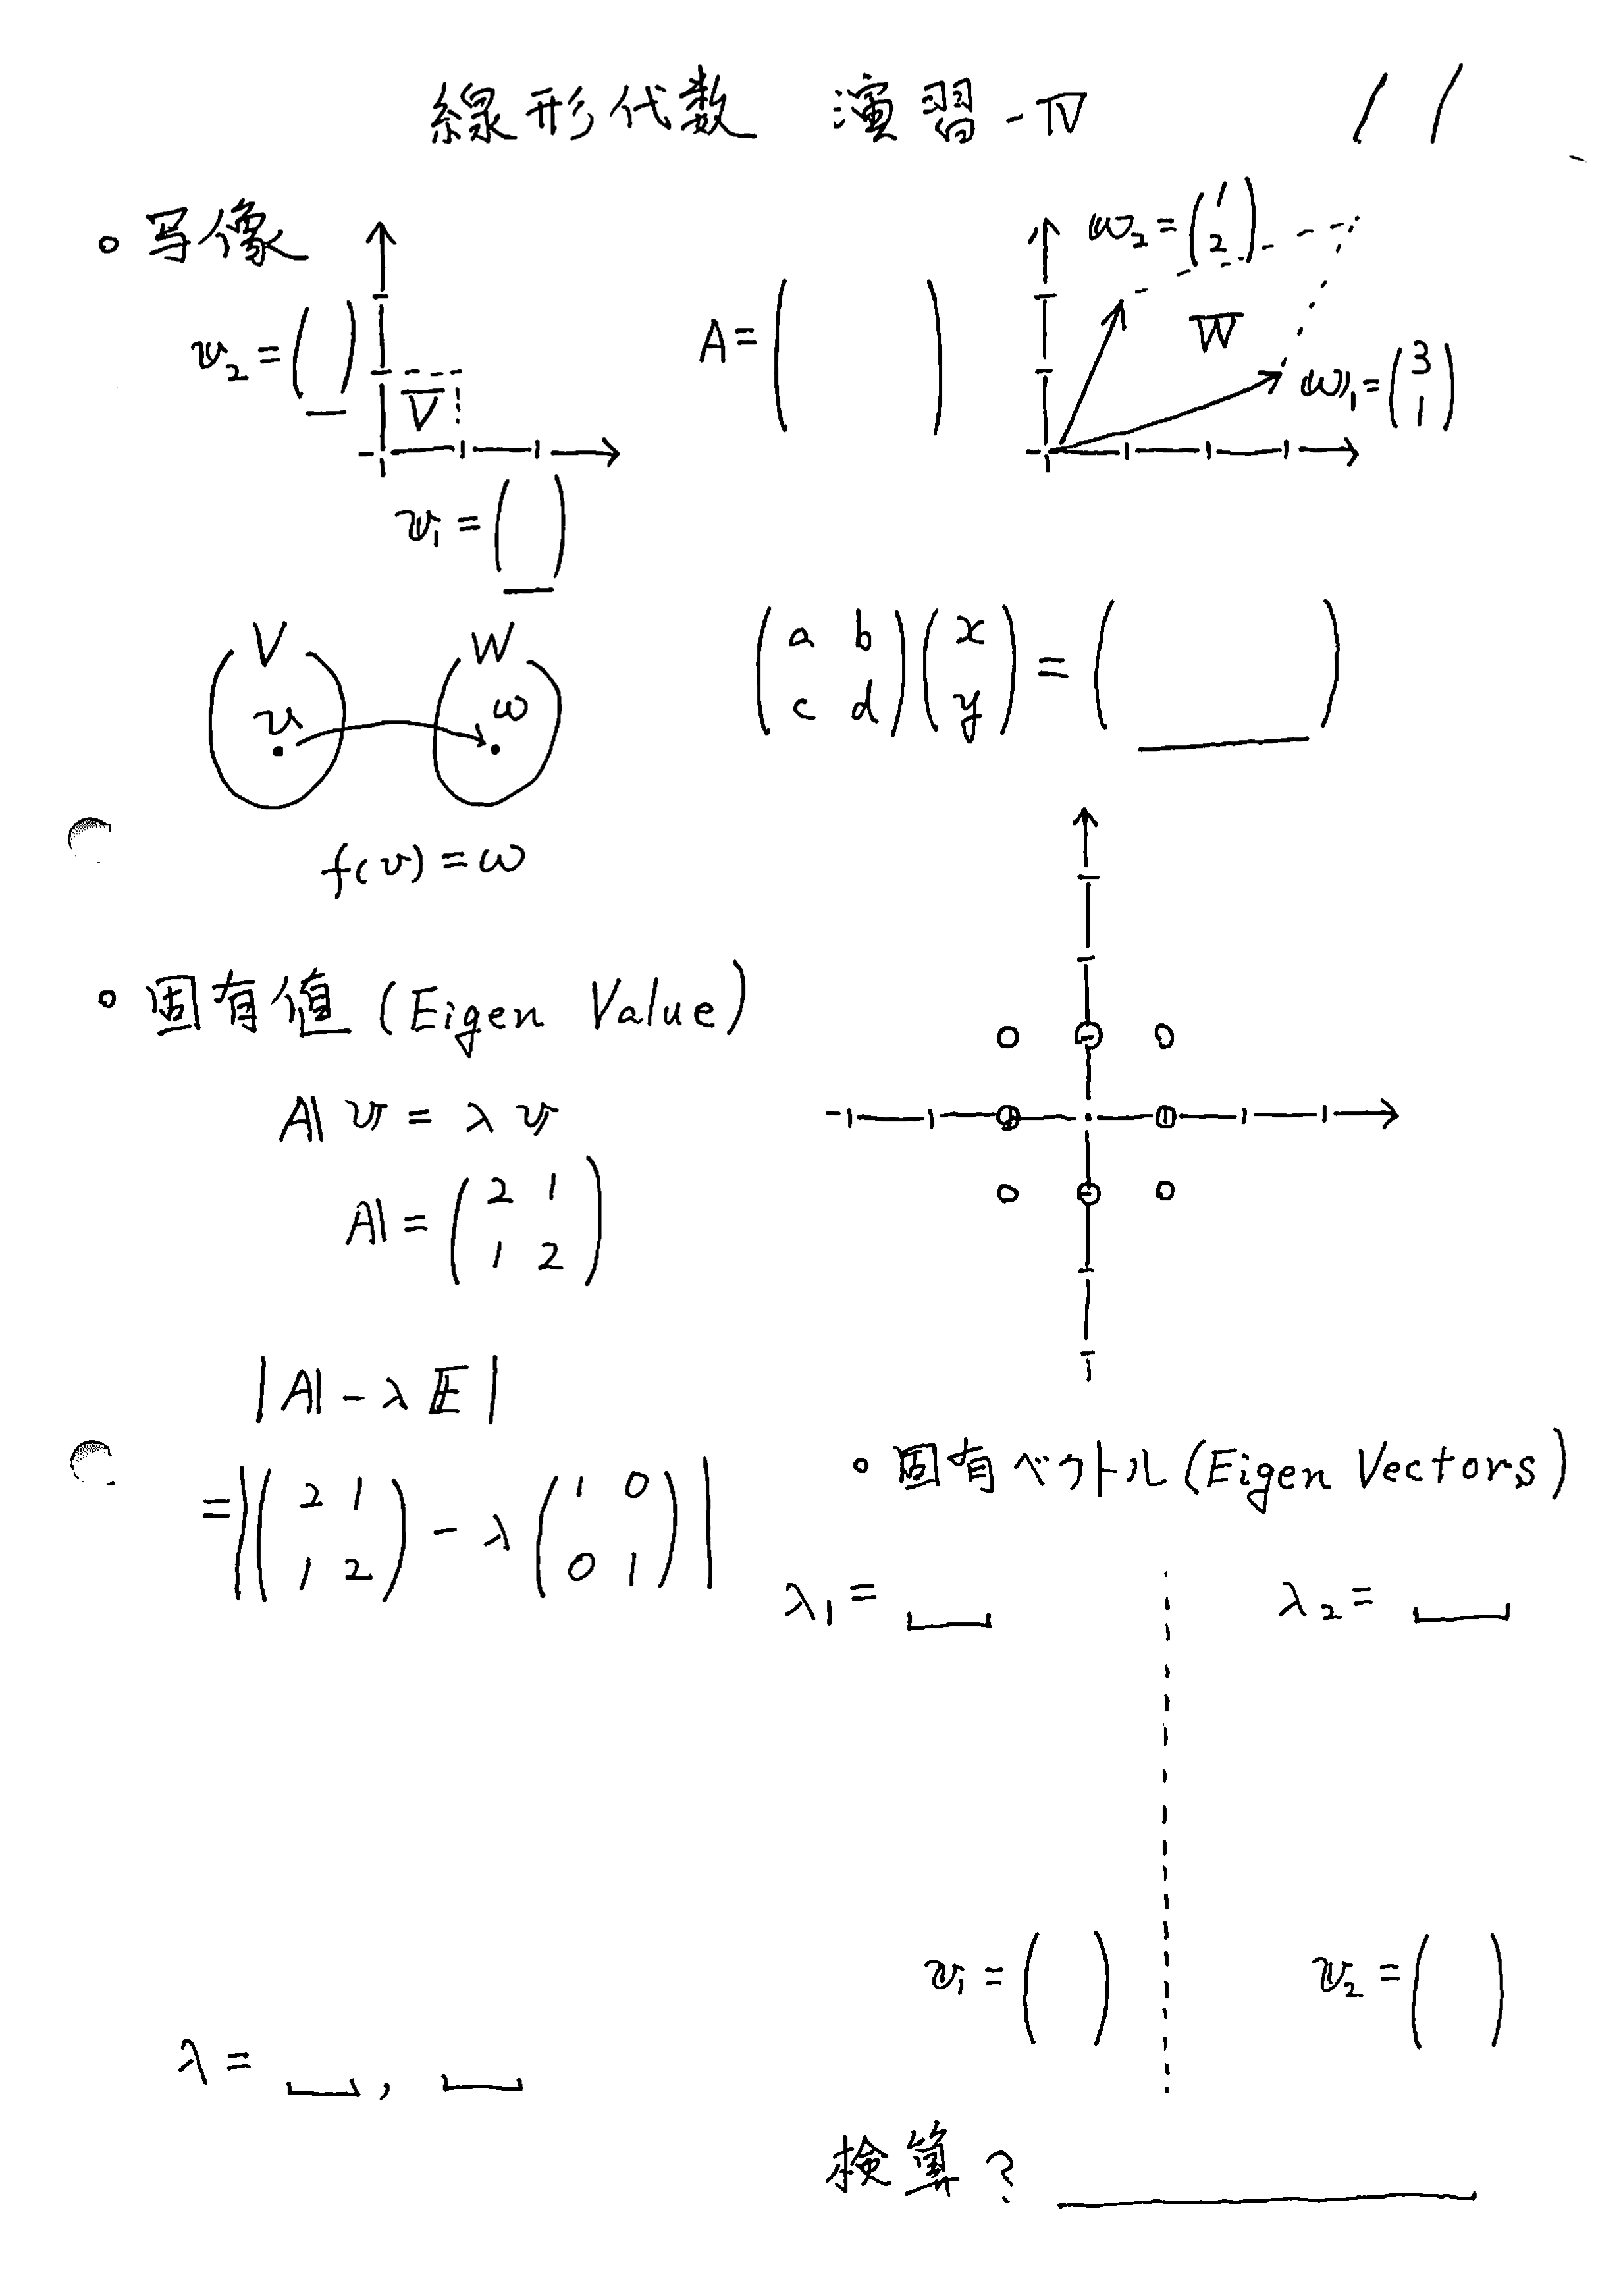 線形代数 演習-Ⅳ / /
• 写像
v₂ = ( )
V
v₁ = ( )
A = ( )
w₂ = (1 2)
W
w₁ = (3 1)
V W
v w
f(v) = w
(a b
c d)(x
y) = ( )
• 固有値 (Eigen Value)
A v = λ v
A = (2 1
1 2)
|A - λE|
= |(2 1
1 2) - λ(1 0
0 1)|
λ = , 
• 固有ベクトル (Eigen Vectors)
λ₁ = λ₂ =
v₁ = ( ) v₂ = ( )
検算?